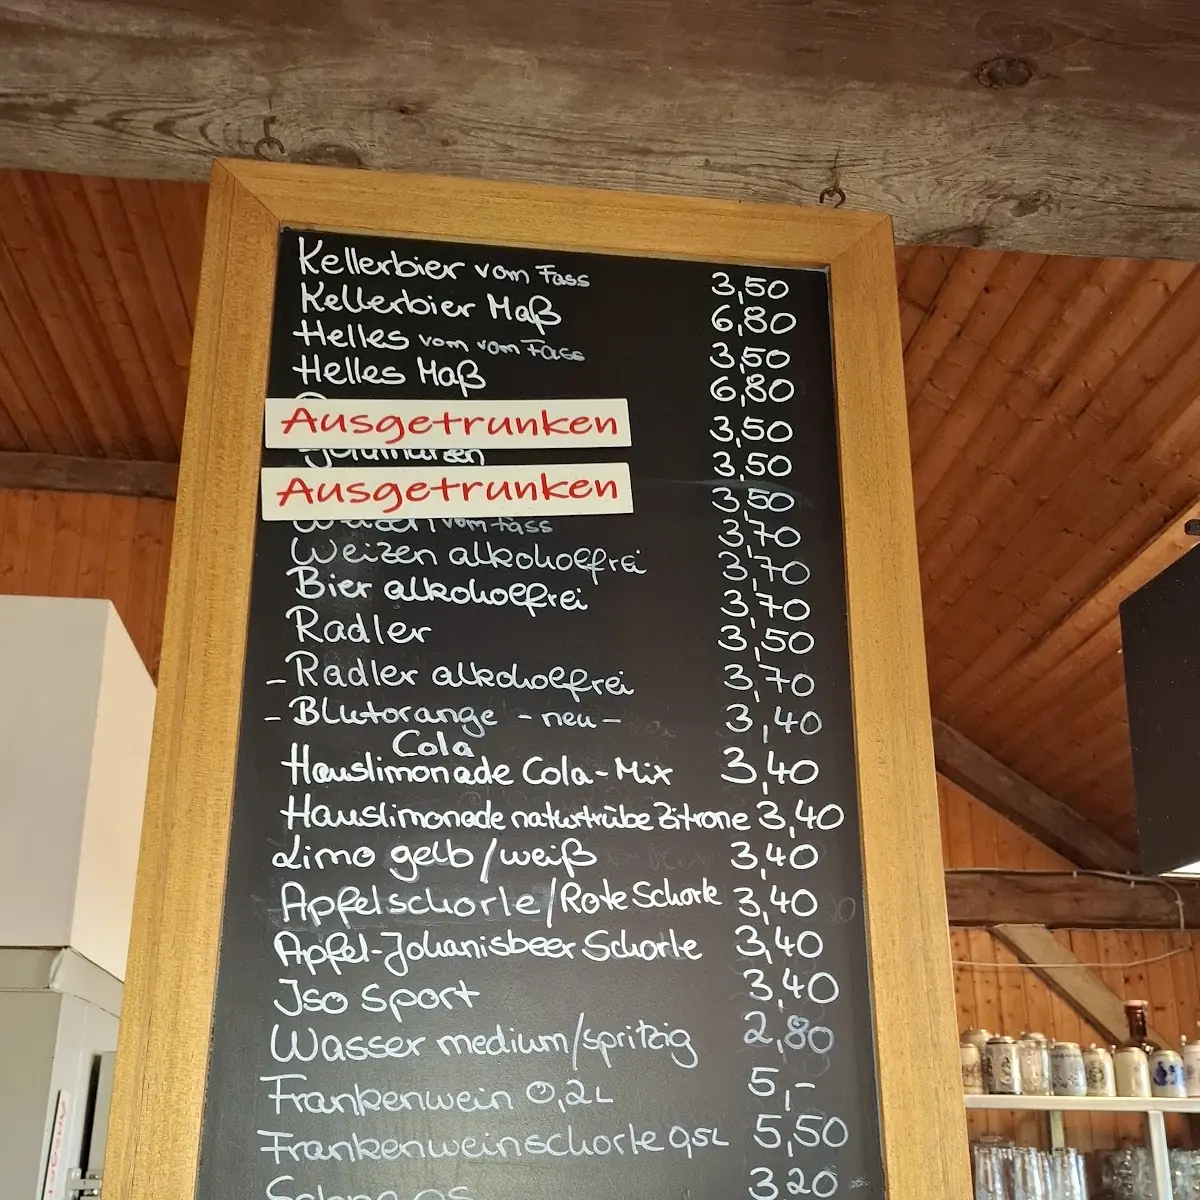 Kellerbier vom Fass 3,50
Kellerbier Maß 6,80
Helles vom vom Fass 3,50
Helles Maß 6,80
Ausgetrunken 3,50
3,50
Ausgetrunken 3,50
Weizen vom Fass 3,70
Weizen alkoholfrei 3,70
Bier alkoholfrei 3,70
Radler 3,50
- Radler alkoholfrei 3,70
- Blutorange - neu - 3,40
Cola
Hauslimonade Cola-Mix 3,40
Hauslimonade naturtrübe Zitrone 3,40
Limo gelb/weiß 3,40
Apfelschorle/Rote Schorle 3,40
Apfel-Johanisbeer Schorle 3,40
Iso Sport 3,40
Wasser medium/spritzig 2,80
Frankenwein 0,2L 5,-
Frankenweinschorle 0,5L 5,50
3,20